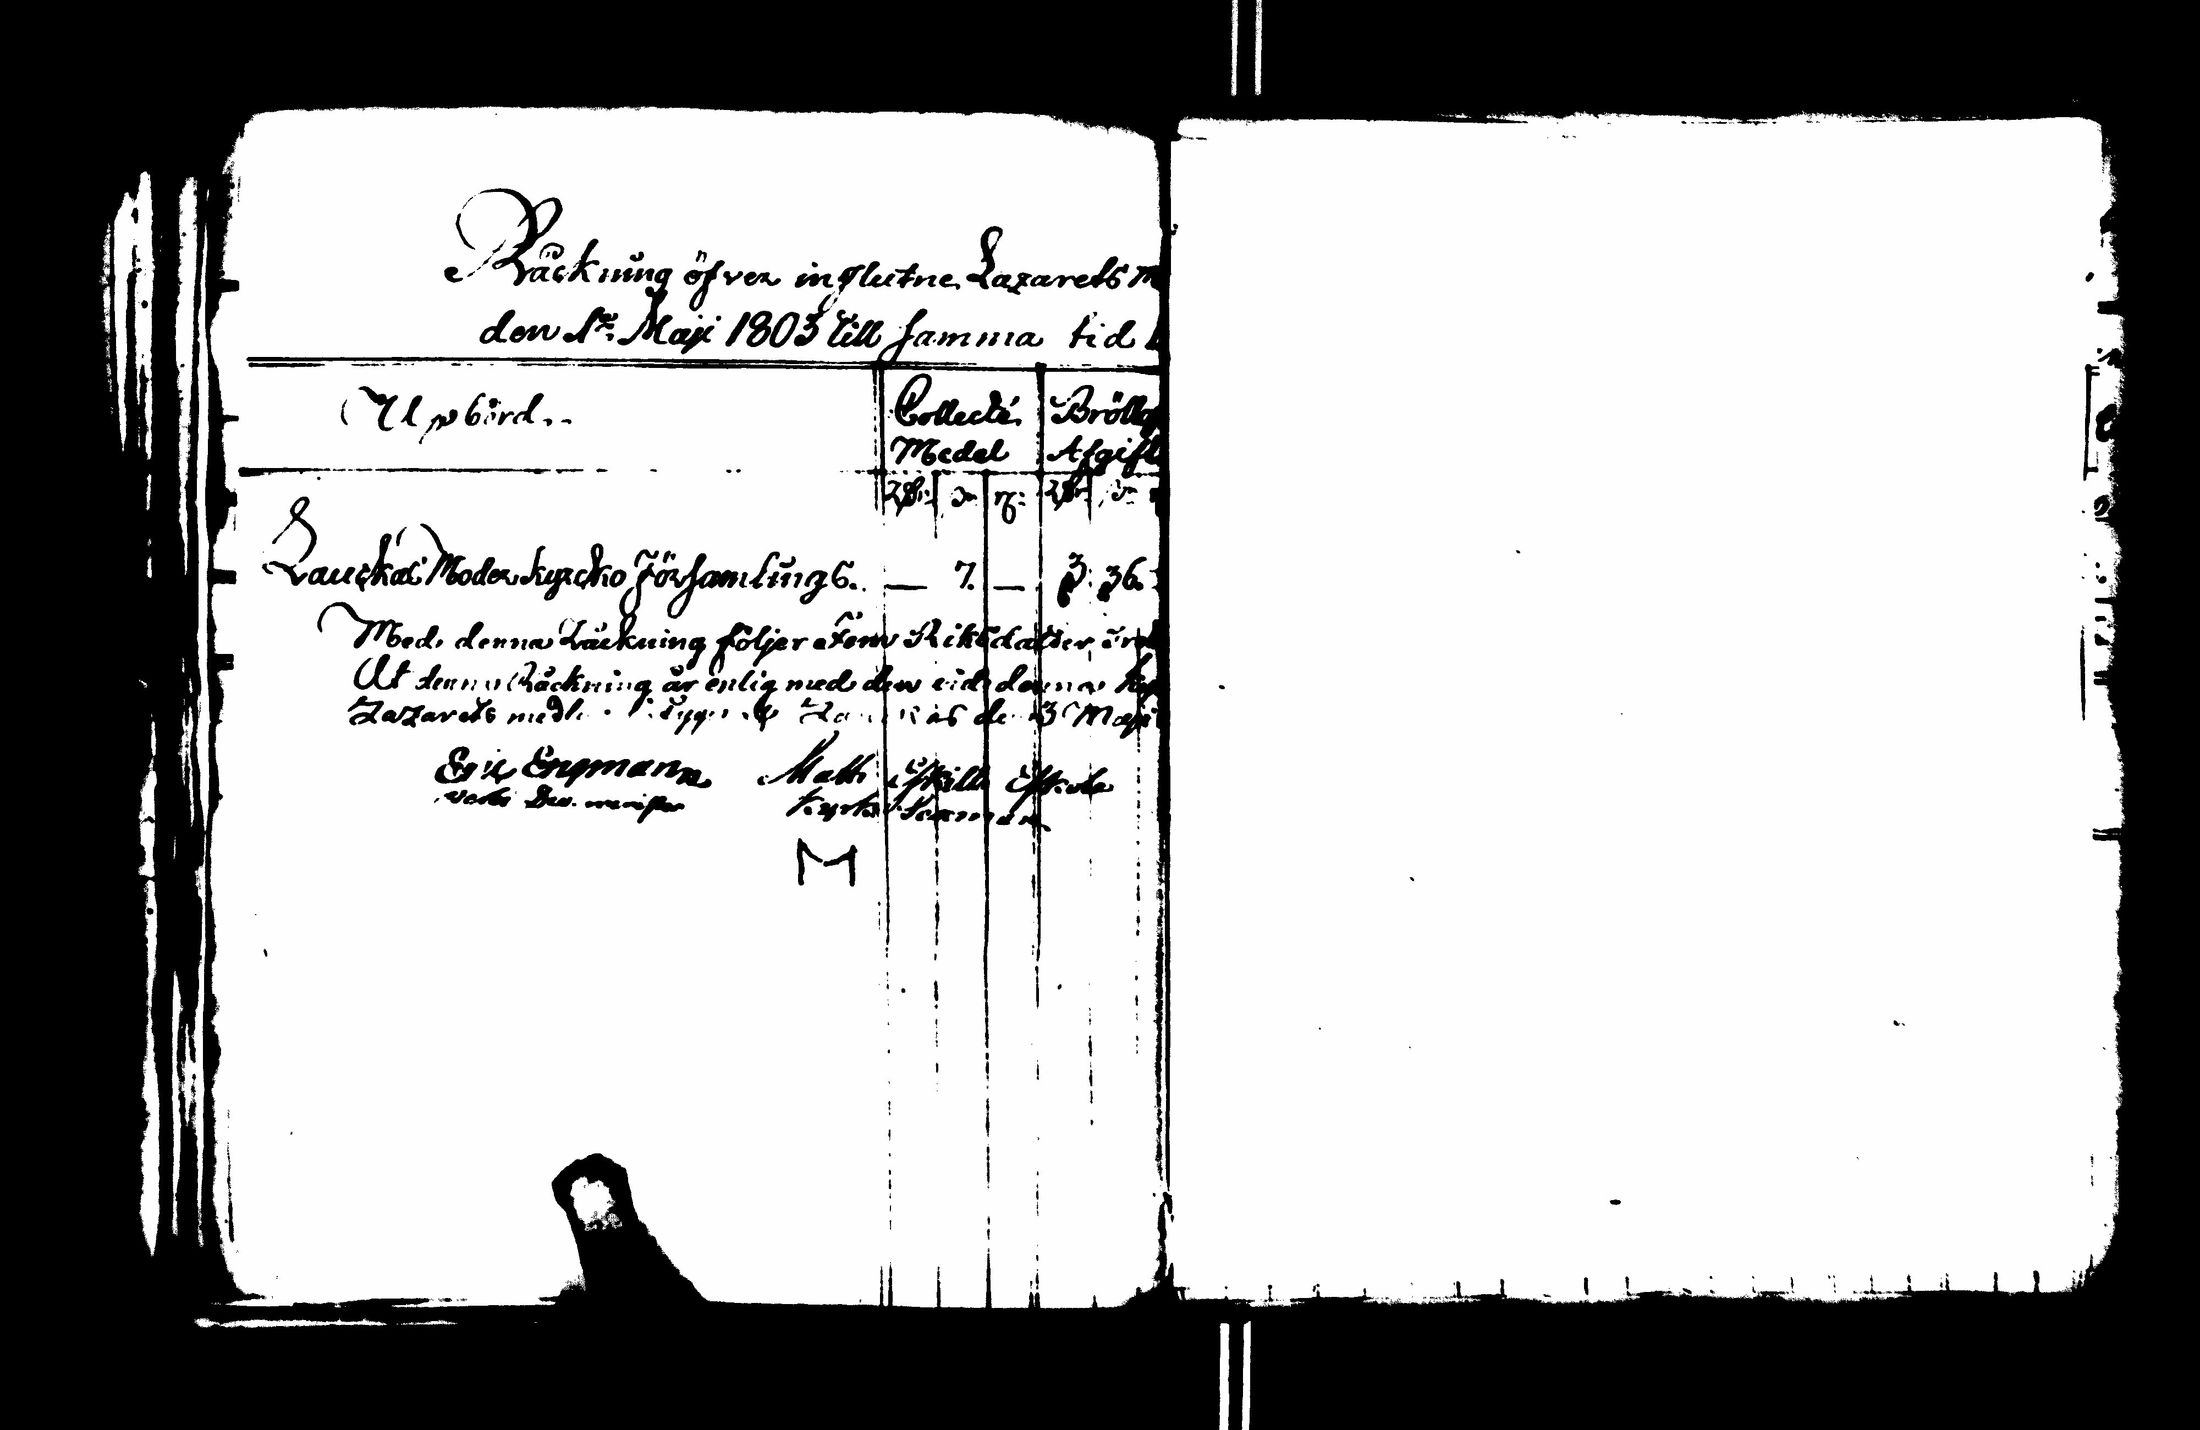 Räckning öfver influtne Lazarets M
den 1ª Maji 1803 till samma tid 1
Upbörd..
Collecte Medel
Bröllop Afgift
Rdr. s. r. Rdr. s.
Lauckas Moderkyrcko Församlings. — 7. — 3. 36.
Med denna Räckning följer Fem Riksdaler
At denna Räckning är enlig med den vid denna
Lazarets medl Laukas de 3 Maji
Eric Engman Matts Eskill Eskola
Kyrko
M